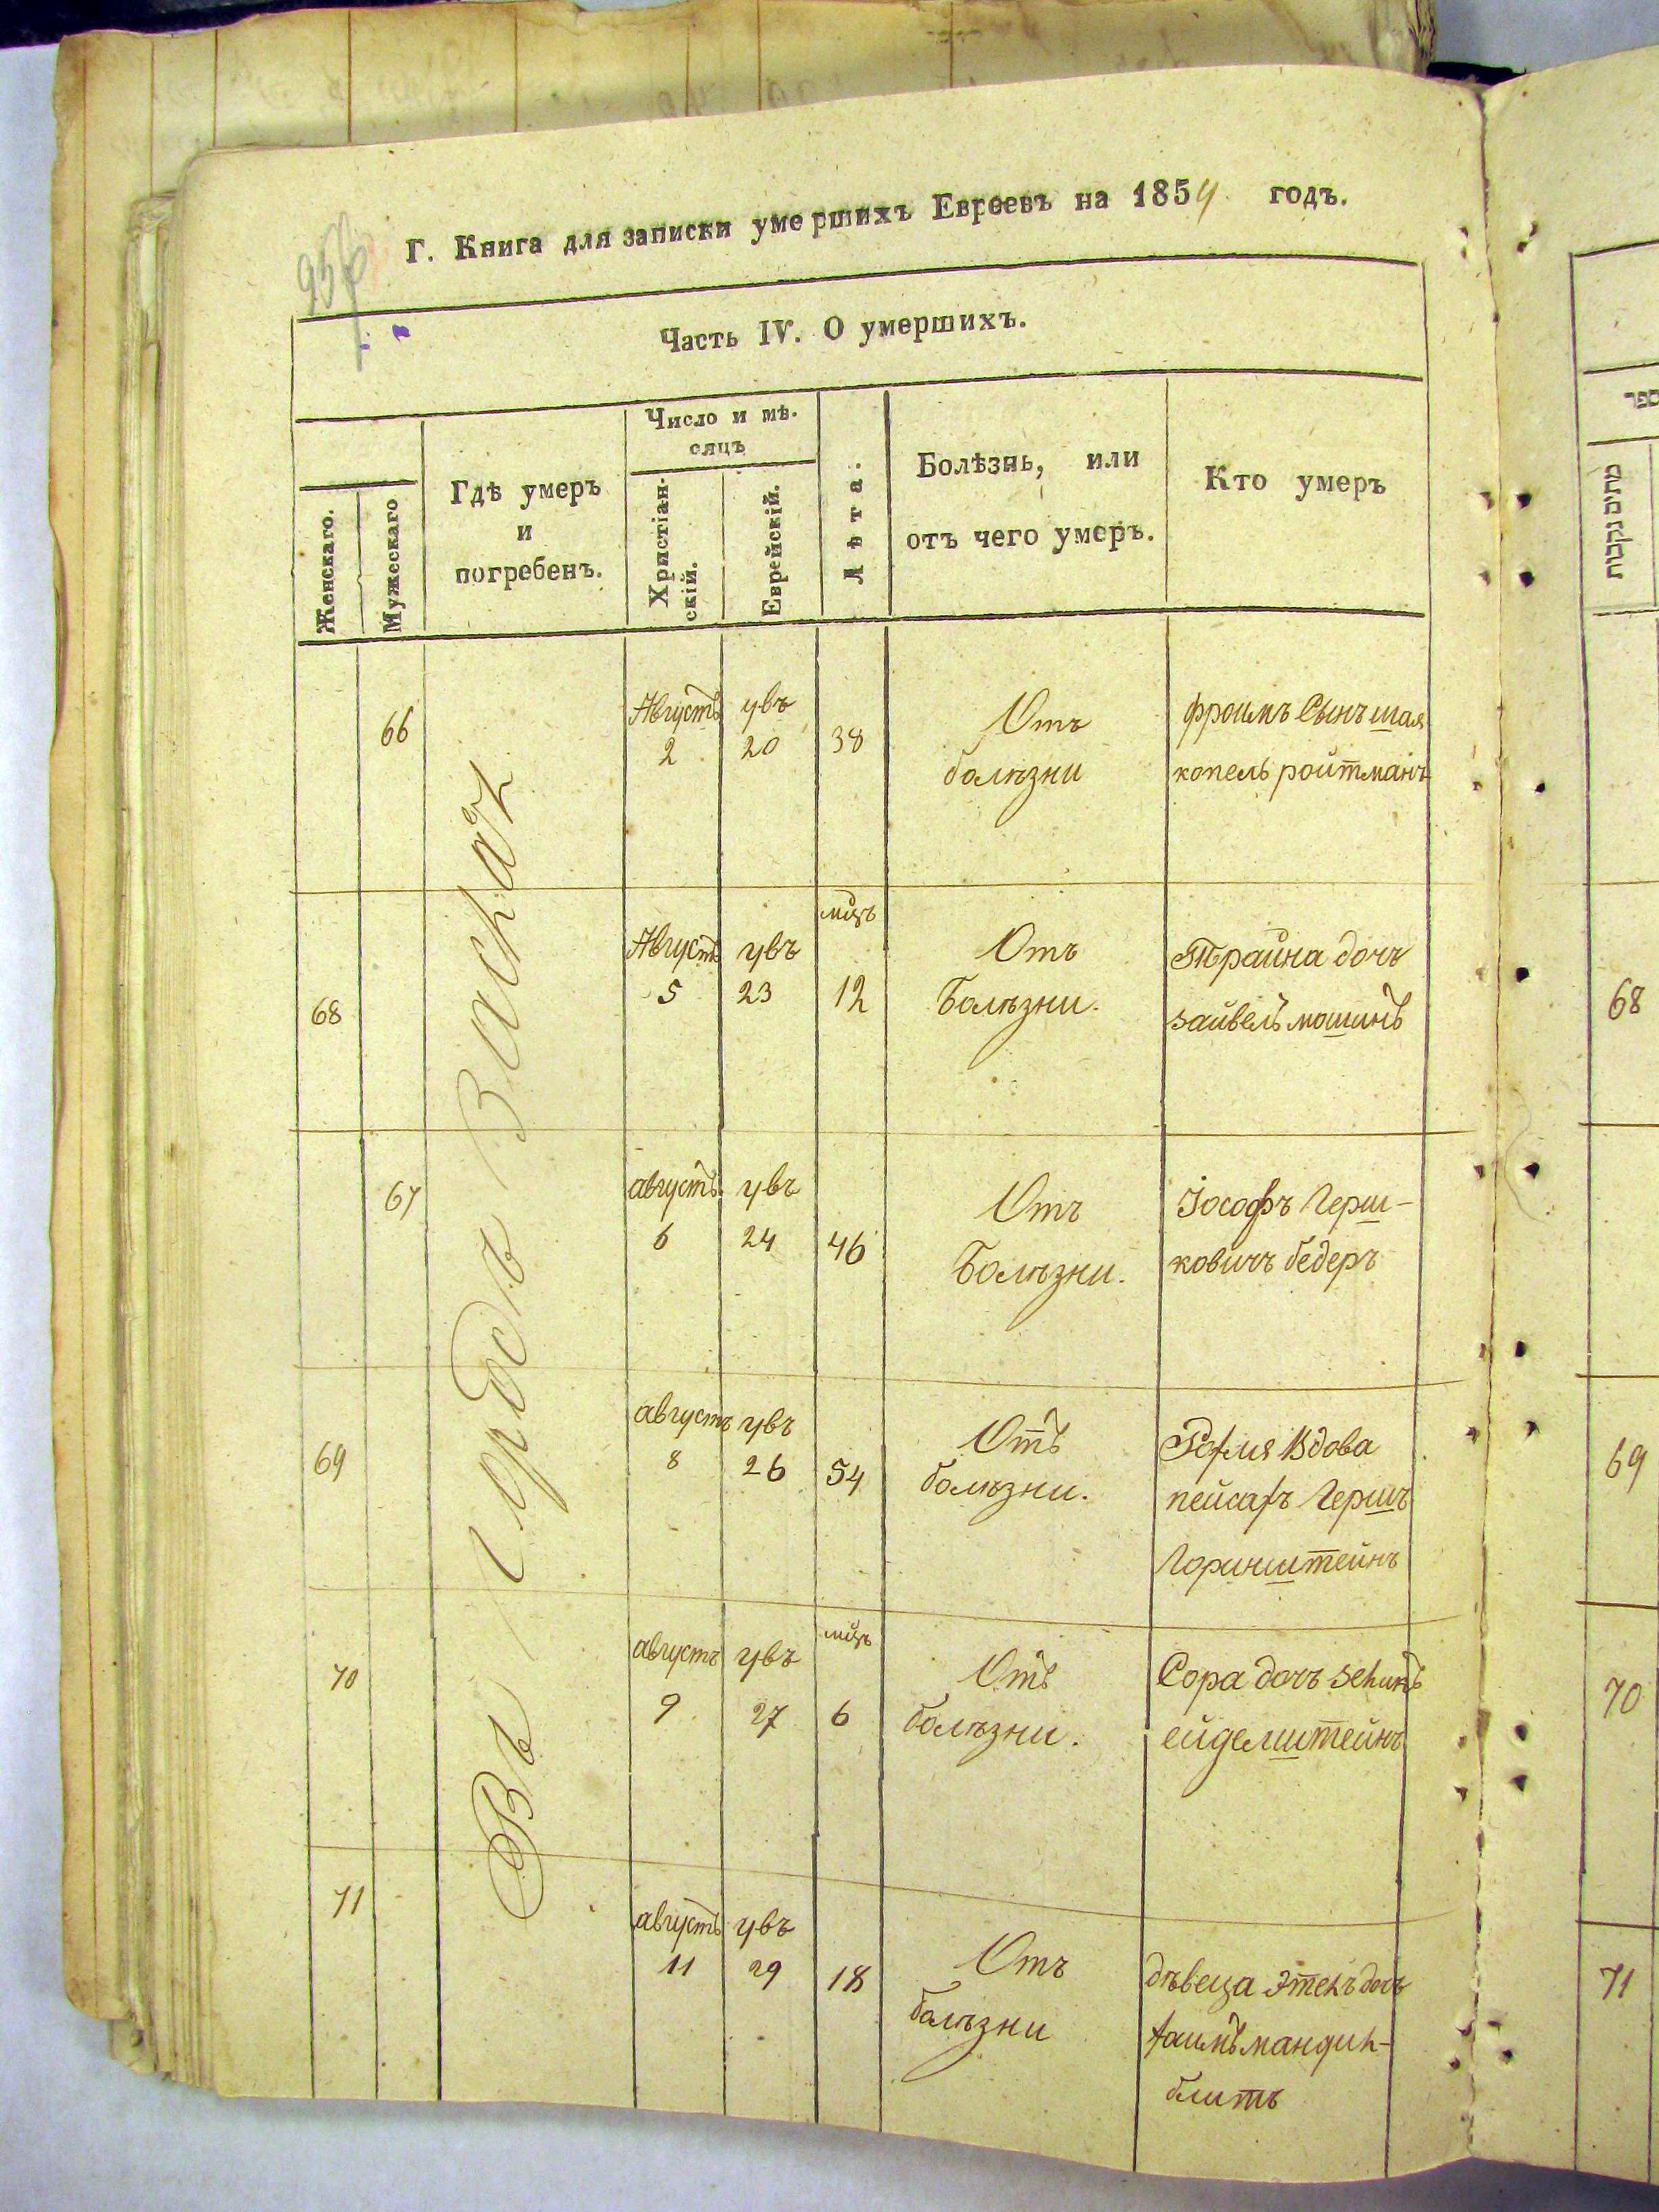 956
Г. Книга для записки умершихъ Евреевъ на 1854 годъ.
Часть IV. О умершихъ.
Женскаго.
Мужескаго
Гдѣ умеръ
и
погребенъ.
Число и мѣ-
сяцъ
Христіан-
скій.
Еврейскій.
Лѣта.
Болѣзнь, или
отъ чего умеръ.
Кто умеръ
Въ Городѣ
66
Августъ
2
увъ
20
38
Отъ
болѣзни
фроимъ Сынъ шая
копель ройтманъ
68
Августъ
5
увъ
23
мцъ
12
Отъ
Болѣзни.
Трайна дочъ
зайвель мошинъ
67
августъ
6
увъ
24
46
Отъ
Болѣзни.
Іософъ Герш-
ковичъ бедеръ
69
августъ
8
увъ
26
54
Отъ
болѣзни.
Вдова
Гершъ
Горинштейнъ
70
августъ
9
увъ
27
мцъ
6
Отъ
болѣзни.
Сора дочъ
ейделштейнъ
71
августъ
11
увъ
29
18
Отъ
болѣзни
дѣвеца дочъ
блитъ
ספר
מתים נקבות
68
69
70
71